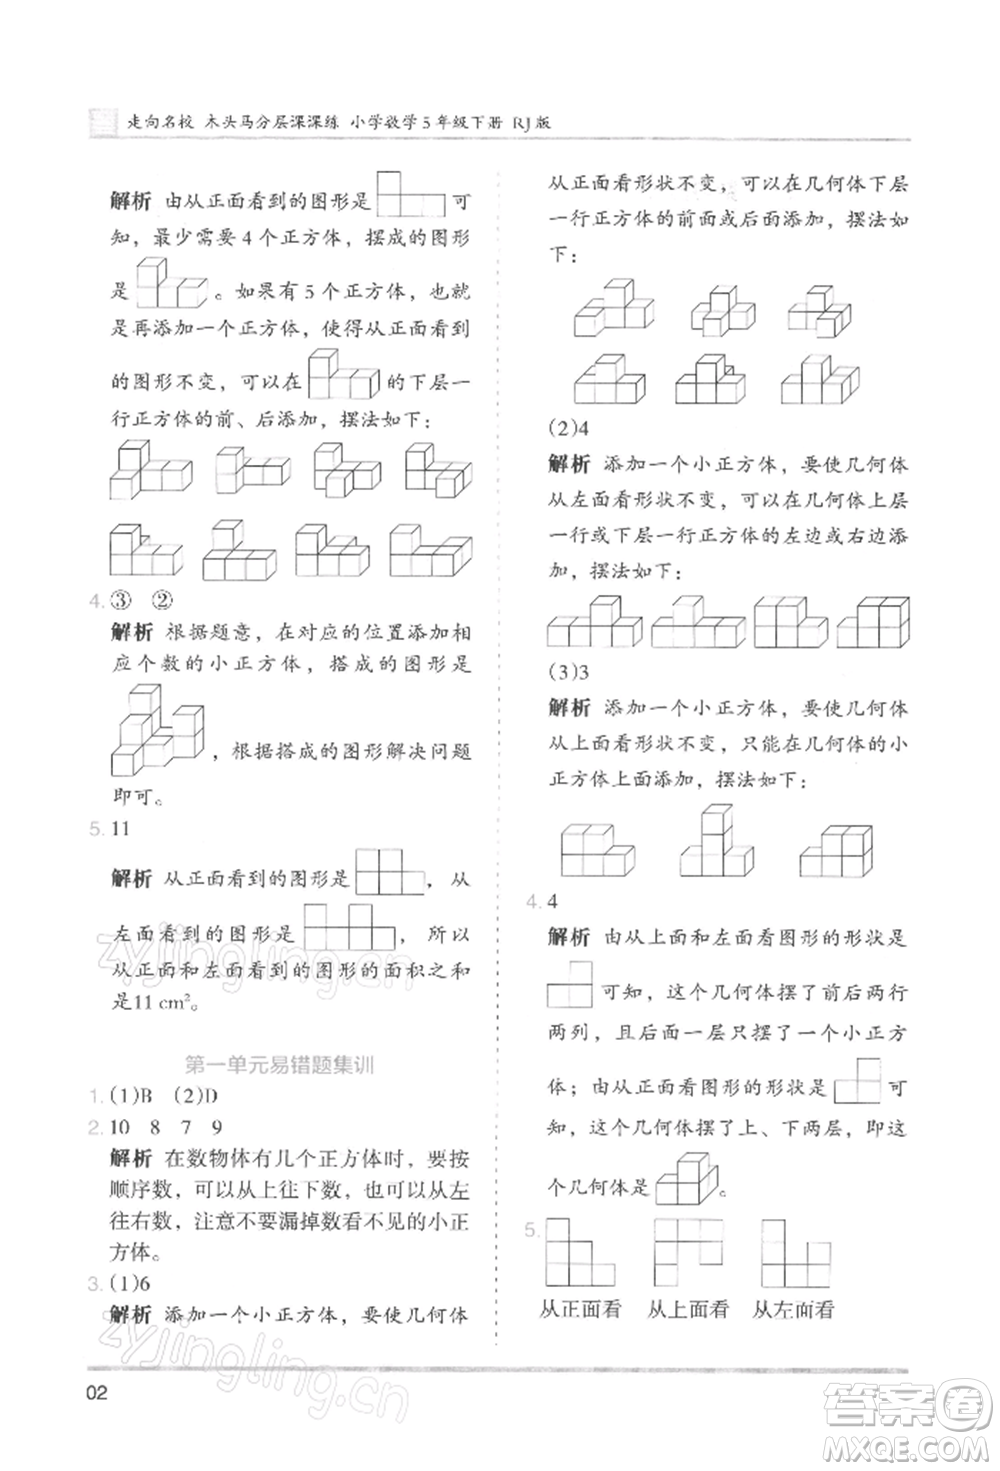 走向名校 木头马分层课课练 小学数学5年级下册 RJ版
解析 由从正面看到的图形是 可
知，最少需要4个正方体，摆成的图形
是 。如果有5个正方体，也就
是再添加一个正方体，使得从正面看到
的图形不变，可以在 的下层一
行正方体的前、后添加，摆法如下：
4. ③ ②
解析 根据题意，在对应的位置添加相
应个数的小正方体，搭成的图形是
，根据搭成的图形解决问题
即可。
5. 11
解析 从正面看到的图形是 ，从
左面看到的图形是 ，所以
从正面和左面看到的图形的面积之和
是11 cm²。
第一单元易错题集训
1. (1)B (2)D
2. 10 8 7 9
解析 在数物体有几个正方体时，要按
顺序数，可以从上往下数，也可以从左
往右数，注意不要漏掉数看不见的小正
方体。
3. (1)6
解析 添加一个小正方体，要使几何体
从正面看形状不变，可以在几何体下层
一行正方体的前面或后面添加，摆法如
下：
(2)4
解析 添加一个小正方体，要使几何体
从左面看形状不变，可以在几何体上层
一行或下层一行正方体的左边或右边添
加，摆法如下：
(3)3
解析 添加一个小正方体，要使几何体
从上面看形状不变，只能在几何体的小
正方体上面添加，摆法如下：
4. 4
解析 由从上面和左面看图形的形状是
可知，这个几何体摆了前后两行
两列，且后面一层只摆了一个小正方
体；由从正面看图形的形状是 可
知，这个几何体摆了上、下两层，即这
个几何体是 。
5.
从正面看 从上面看 从左面看
02
zyjingling.cn
zyjingling.cn
答案卷
MXQE.COM